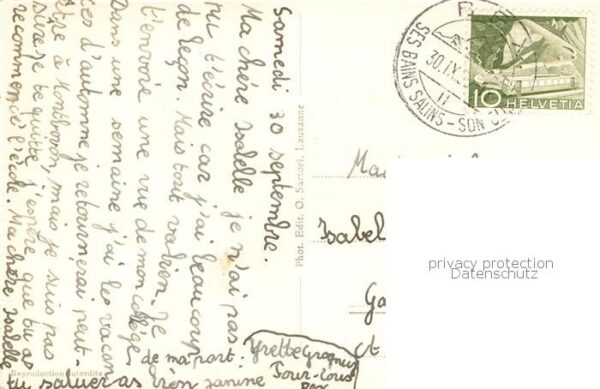 Samedi 30 septembre.
Ma chère Isabelle je n'ai pas
pu t'écrire car j'ai beaucoup
de leçon. Mais tout va bien. Je
t'envoie une vue de mon collège
Dans une semaine j'ai les vacan
ces d'automne je retournerai peut-
être à Montbovon, mais je suis pas
sûre je te quitte j'espère que tu as
recommencé l'école. Ma chère Isabelle
tu salueras bien Janine
de ma part. Yvette
Pour tous
Phot. Edit. O. Sartori, Lausanne
Reproduction interdite
30.IX.
SES BAINS SALINS - SON
II
10 HELVETIA
Isabel
Ga
ct
privacy protection
Datenschutz